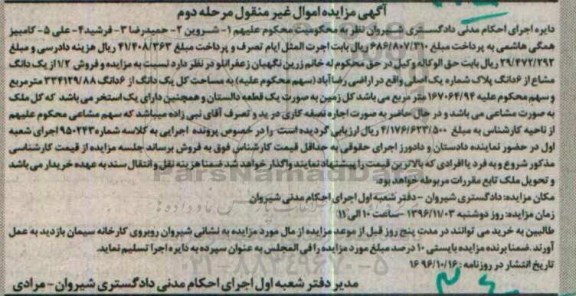 آگهی مزایده اموال غیر منقول مرحله دوم
دایره اجرای احکام مدنی دادگستری شیروان نظر به محکومیت محکوم علیهم ۱- شیروین ۲- حمیدرضا ۳- فرشید ۴- علی ۵- کامبیز
همگی هاشمی به پرداخت مبلغ ۶۸۶/۸۰۷/۳۱۰ ریال بابت اجرت المثل ایام تصرف و پرداخت مبلغ ۴۱/۴۰۸/۳۶۳ ریال هزینه دادرسی و مبلغ
۲۹/۴۷۲/۲۹۲ ریال بابت حق الوکاله وکیل در حق محکوم له خانم زرین نگهبان زعفرانلو در نظر دارد نسبت به مزایده و فروش ۱/۲ از یک دانگ
مشاع از ۶ دانگ پلاک شماره یک اصلی واقع در اراضی رضا آباد (سهم محکوم علیه) به مساحت کل یک دانگ از ۶ دانگ ۳۳۴۱۲۹/۸۸ مترمربع
و سهم محکوم علیه ۱۶۷۰۶۴/۹۴ متر مربع می باشد کل زمین به صورت یک قطعه دالستان و همچنین دارای یک استخر می باشد که کل ملک
به صورت مشاعی می باشد و در حال حاضر به صورت اجاره نصفه کاری در ید و تصرف آقای نبی زاده میباشد که سهم مشاعی محکوم علیهم
از ناحیه کارشناس به مبلغ ۴/۱۷۶/۶۲۳/۵۰۰ ریال ارزیابی گردیده است را در خصوص پرونده اجرایی به کلاسه شماره ۹۵۰۲۴۳ اجرای شعبه
اول در حضور نماینده دادستان و دادورز اجرای حقوقی به حداقل قیمت کارشناس فوق به فروش برساند جلسه مزایده از قیمت کارشناسی
مذکور شروع و به فرد یا افرادی که بالاترین قیمت را پیشنهاد نمایند واگذار خواهد شد ضمنا هزینه نقل و انتقال سند به عهده خریدار می باشد
و تحویل ملک تابع مقررات مربوطه خواهد بود.
مکان مزایده: دادگستری شیروان - دفتر شعبه اول اجرای احکام مدنی شیروان
زمان مزایده: روز دوشنبه ۱۳۹۶/۱۱/۰۳ - ساعت ۱۰ الی ۱۱
طالبین به خرید می توانند در مدت پنج روز قبل از موعد مزایده از مال مورد مزایده به نشانی شیروان روبروی کارخانه سیمان بازدید به عمل
آورند. ضمنا برنده مزایده بایستی ۱۰ درصد مبلغ مورد مزایده را فی المجلس به عنوان سپرده به دایره اجرا تسلیم نماید.
تاریخ انتشار در روزنامه: ۹۶/۱۰/۱۶
مدیر دفتر شعبه اول اجرای احکام مدنی دادگستری شیروان - مرادی